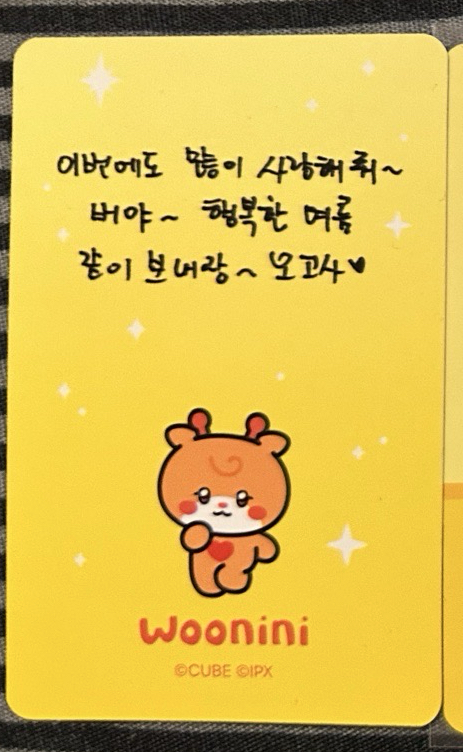 이번에도 많이 사랑해줘~
버야~ 행복한 여름
같이 보내랑~ 모고사♥
Woonini
©CUBE ©IPX